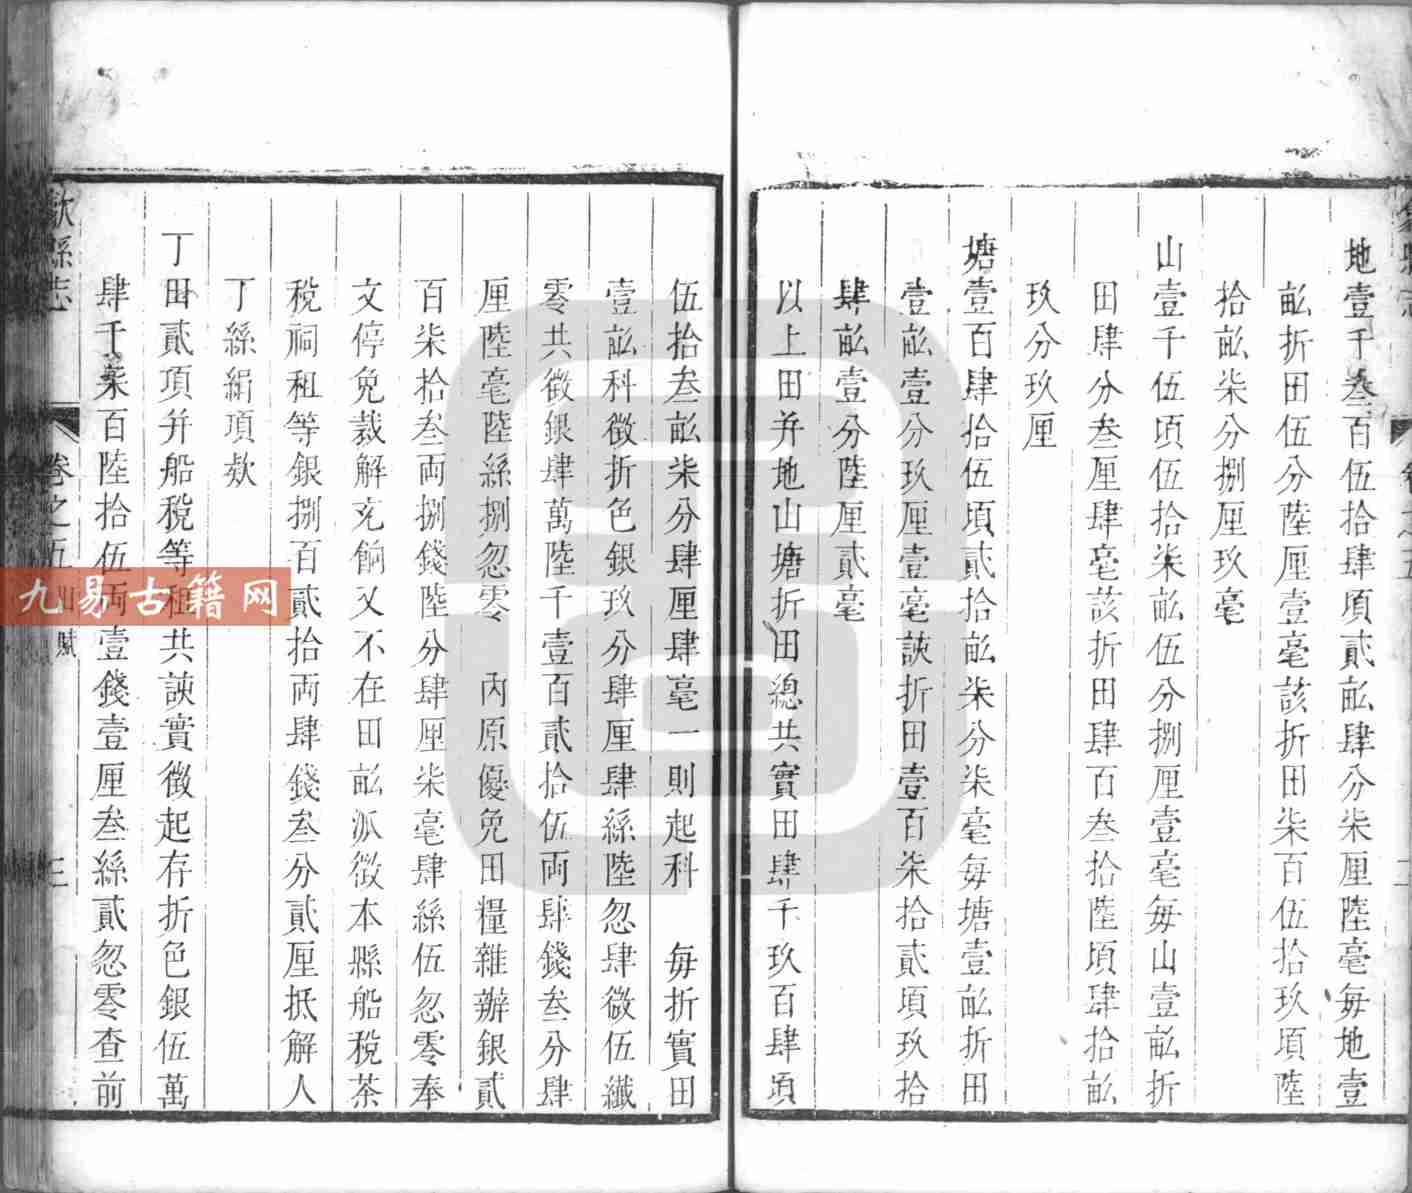 地壹千叁百伍拾肆頃貳畝肆分柒厘陸毫每地壹
畝折田伍分陸厘壹毫該折田柒百伍拾玖頃陸
拾畝柒分捌厘玖毫
山壹千伍頃伍拾柒畝伍分捌厘壹毫每山壹畝折
田肆分叁厘肆毫該折田肆百叁拾陸頃肆拾畝
玖分玖厘
塘壹百肆拾伍頃貳拾畝柒分柒毫每塘壹畝折田
壹畝壹分玖厘壹毫該折田壹百柒拾貳頃玖拾
肆畝壹分陸厘貳毫
以上田并地山塘折田總共實田肆千玖百肆頃
伍拾叁畝柒分肆厘肆毫一則起科 每折實田
壹畝科徵折色銀玖分肆厘肆絲陸忽肆微伍纖
零共徵銀肆萬陸千壹百貳拾伍兩肆錢叁分肆
厘陸毫陸絲捌忽零 內原優免田糧雜辦銀貳
百柒拾叁兩捌錢陸分肆厘柒毫肆絲伍忽零奉
文停免裁解充餉又不在田畝派徵本縣船稅茶
稅祠租等銀捌百貳拾兩肆錢叁分貳厘抵解人
丁絲絹項欵
丁田貳項并船稅等租共該實徵起存折色銀伍萬
肆千柒百陸拾伍兩壹錢壹厘叁絲貳忽零查前
歙縣志
卷之五
賦
三
九易古籍网